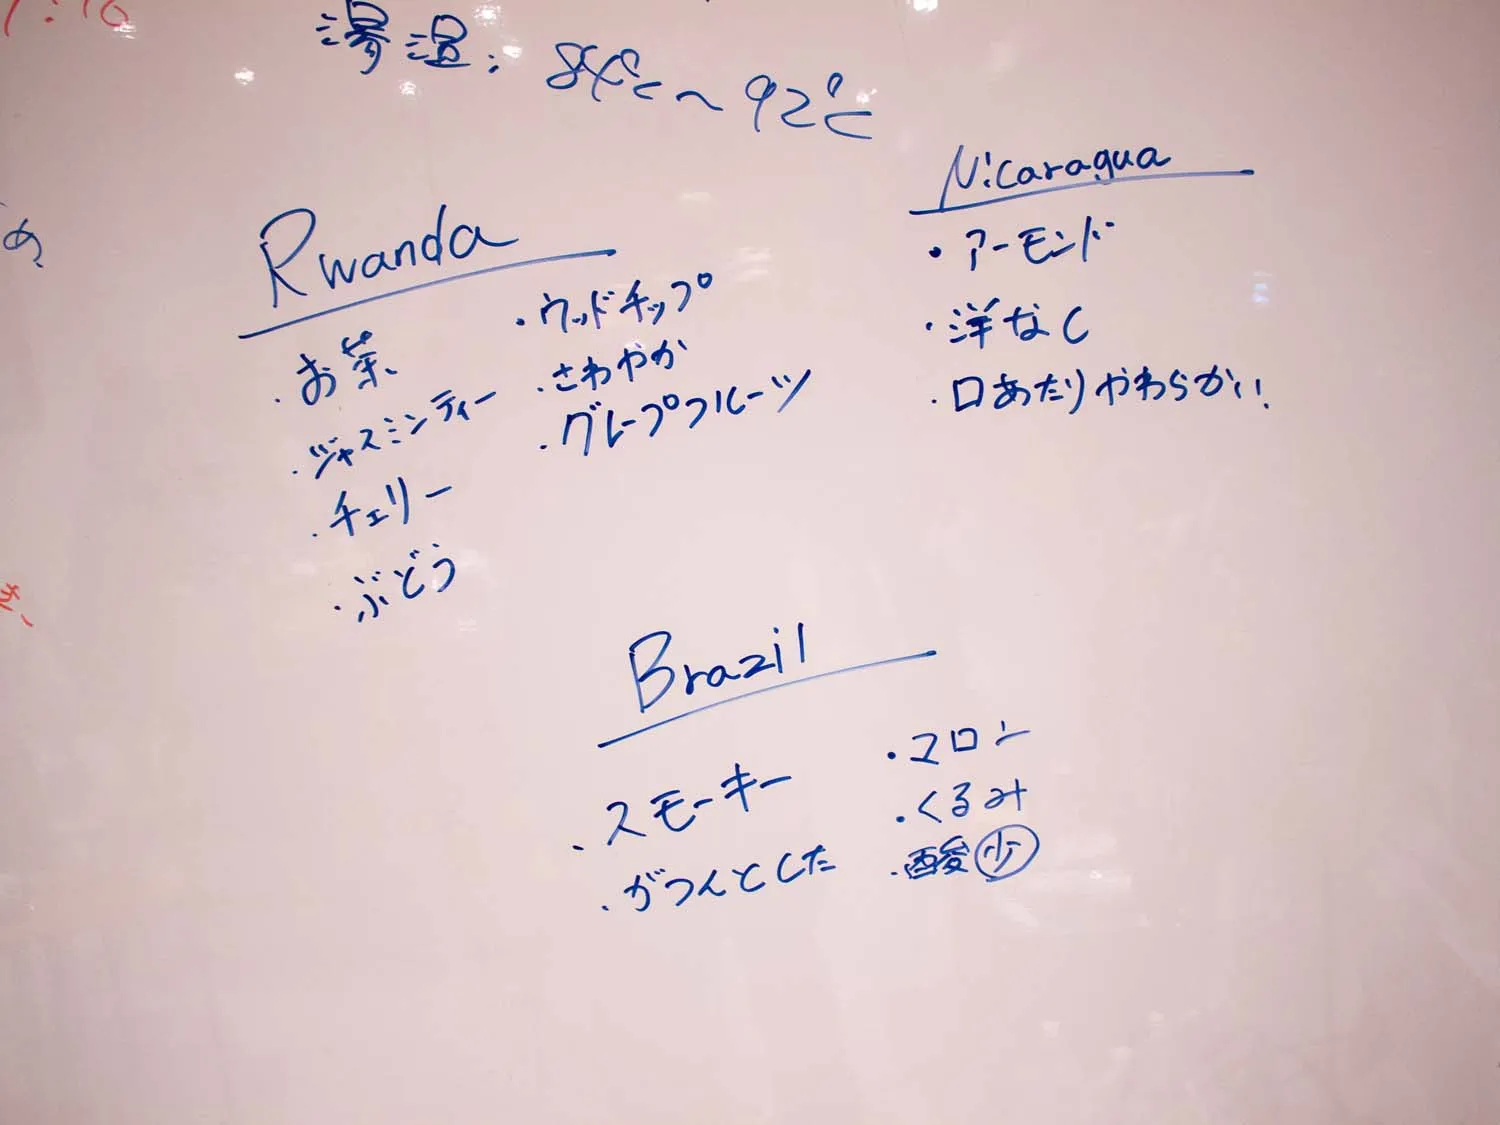 湯温: 84℃〜92℃
Rwanda
・お茶
・ジャスミンティー
・チェリー
・ぶどう
・ウッドチップ
・さわやか
・グレープフルーツ
Nicaragua
・アーモンド
・洋なし
・口あたりやわらかい
Brazil
・スモーキー
・がつんとした
・マロン
・くるみ
・酸少